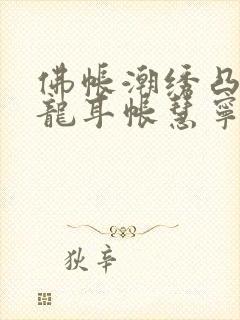 佛帳潮绣凸
龍耳帳慧寧
狄辛